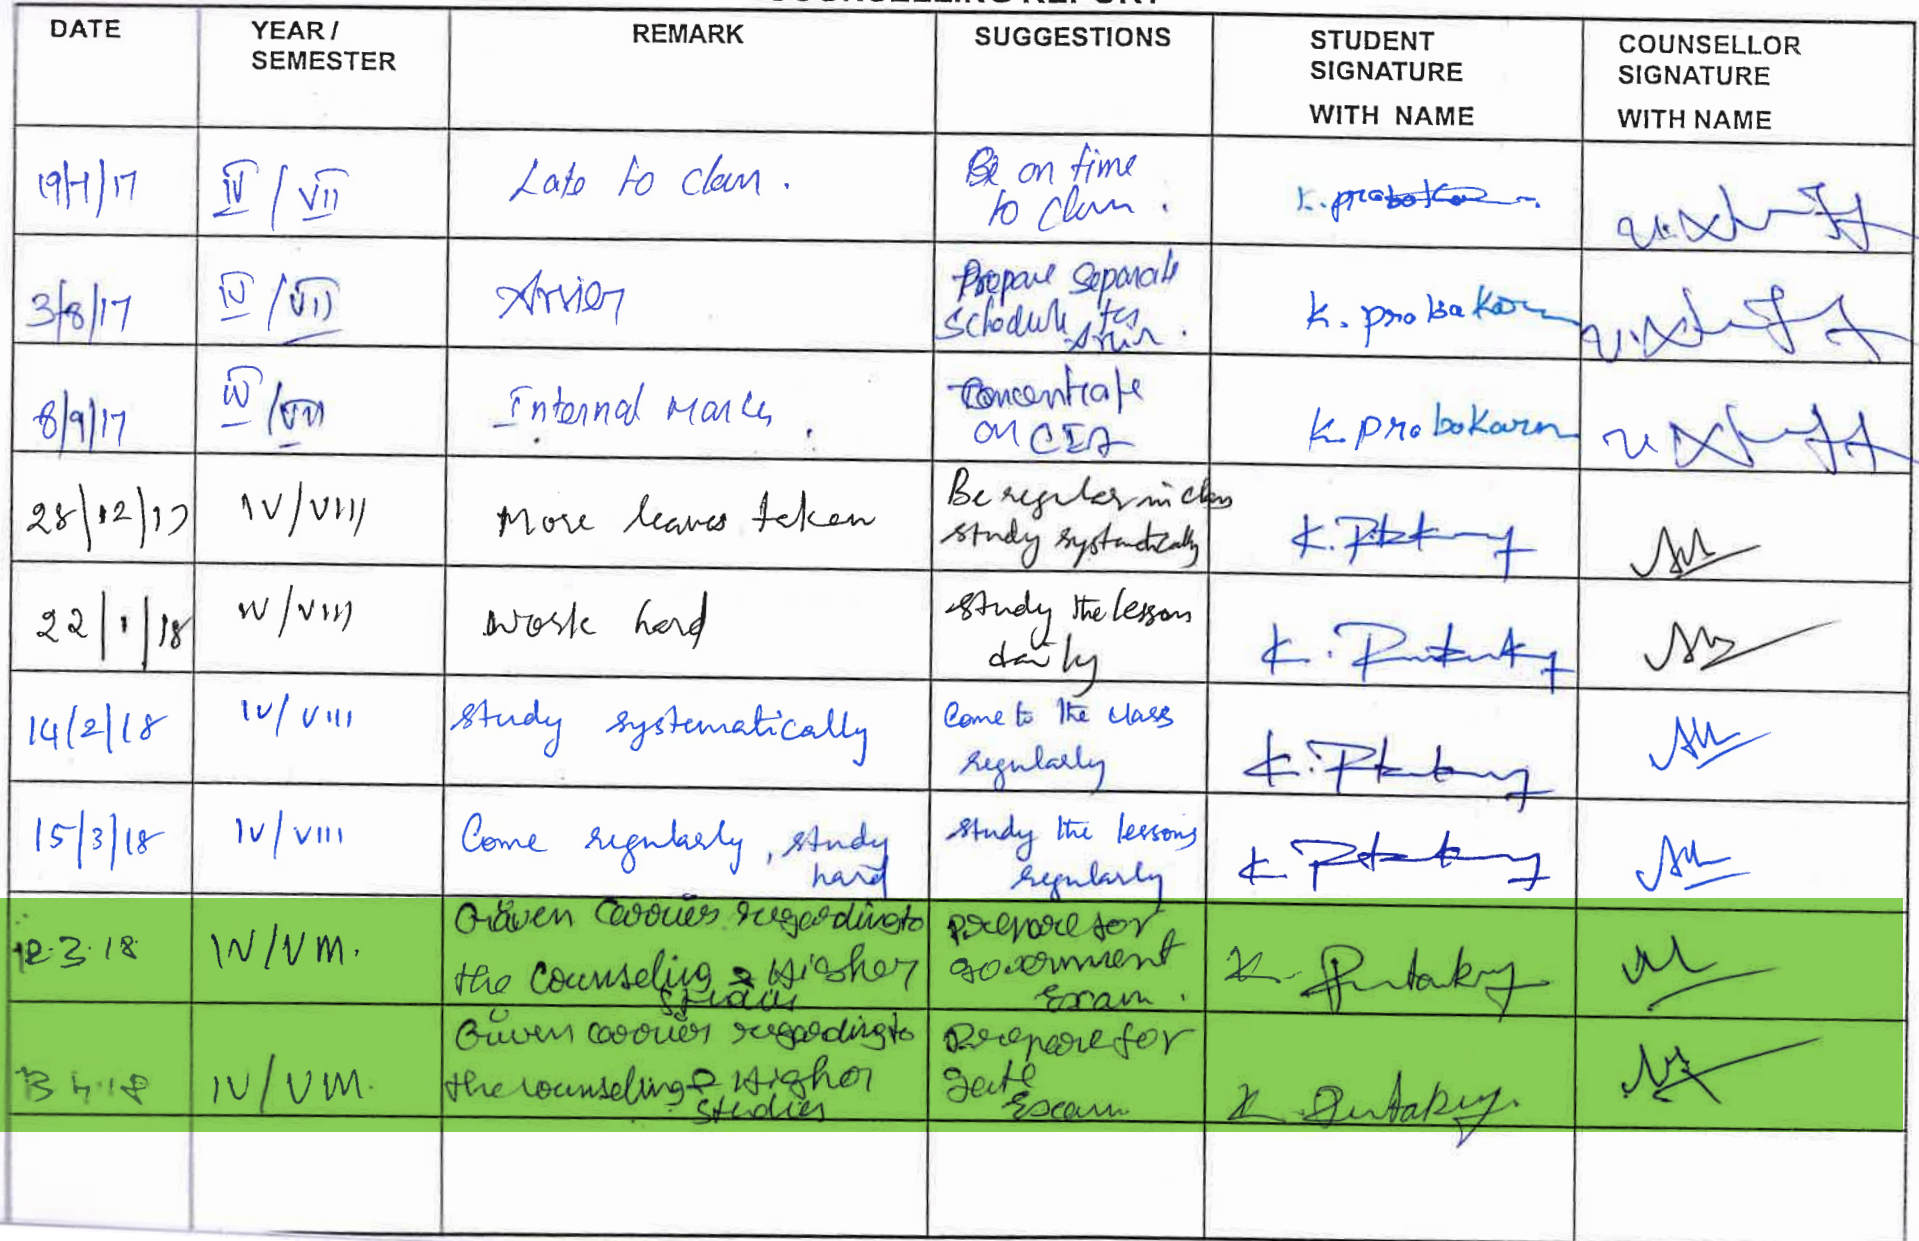 COUNSELLING REPORT
DATE
YEAR /
SEMESTER
REMARK
SUGGESTIONS
STUDENT
SIGNATURE
WITH NAME
COUNSELLOR
SIGNATURE
WITH NAME
19/7/17
IV / VII
Late to class.
Be on time
to class.
K. Prabakaran
3/8/17
IV / VII
Arrier
Prepare Separate
Schedule for
Arrier.
K. Prabakaran
8/9/17
IV / VII
Internal Marks.
Concentrate
on CIA
K. Prabakaran
28/12/17
IV / VIII
More leaves taken
Be regular in class
study systematically
22/1/18
IV / VIII
Work hard
Study the lessons
daily
14/2/18
IV / VIII
Study systematically
Come to the class
regularly
15/3/18
IV / VIII
Come regularly, study
hard
Study the lessons
regularly
3.18
IV / VIII.
Given carrier regarding to
the Counseling & Higher
Studies
Prepare for
government
Exam.
4.18
IV / VIII.
Given carrier regarding to
the counseling & Higher
Studies
Prepare for
gate
Exam